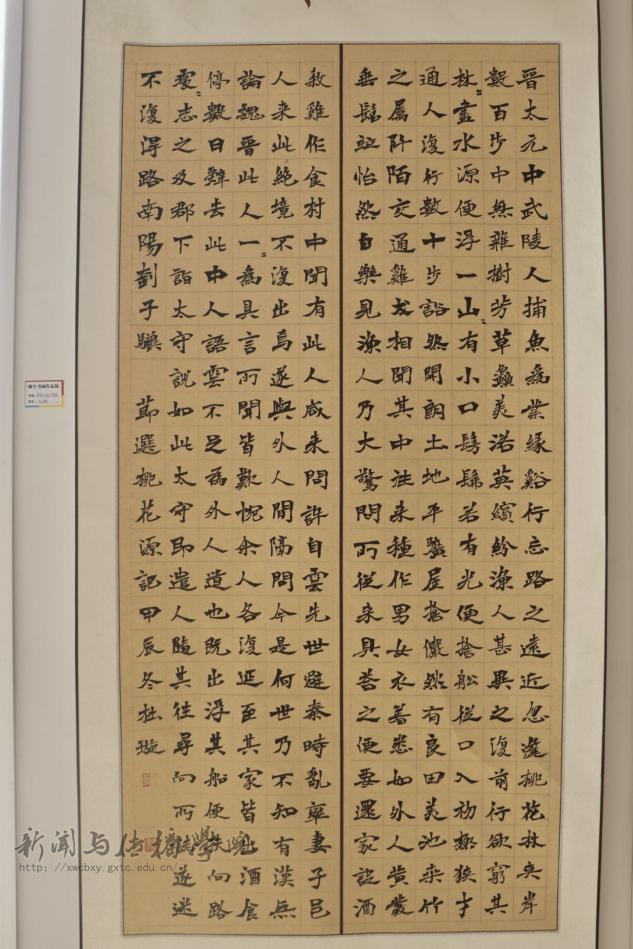 晉太元中武陵人捕魚為業緣谿行忘路之遠近忽逢桃花林夾岸
數百步中無雜樹芳草鱻美落英繽紛漁人甚異之復前行欲窮其
林盡水源便得一山有小口髣髴若有光便捨船從口入初極狹才
通人復行數十步豁然開朗土地平曠屋捨儼然有良田美池桑竹
之屬阡陌交通雞犬相聞其中往來種作男女衣著悉如外人黃髮
垂髫並怡然自樂見漁人乃大驚問所從來具答之便要還家設酒
殺雞作食村中聞有此人咸來問訊自雲先世避秦時亂率妻子邑
人來此絕境不復出焉遂與外人間隔問今是何世乃不知有漢無
論魏晉此人一為具言所聞皆歎惋余人各復延至其家皆出酒食
停數日辭去此中人語雲不足為外人道也既出得其船便扶向路
處志之及郡下詣太守說如此太守即遣人隨其往尋向所志遂迷
不復得路南陽劉子驥
節選桃花源記甲辰冬杜璇
新闻与传播学院
http://xwcbxy.gxtc.edu.cn/